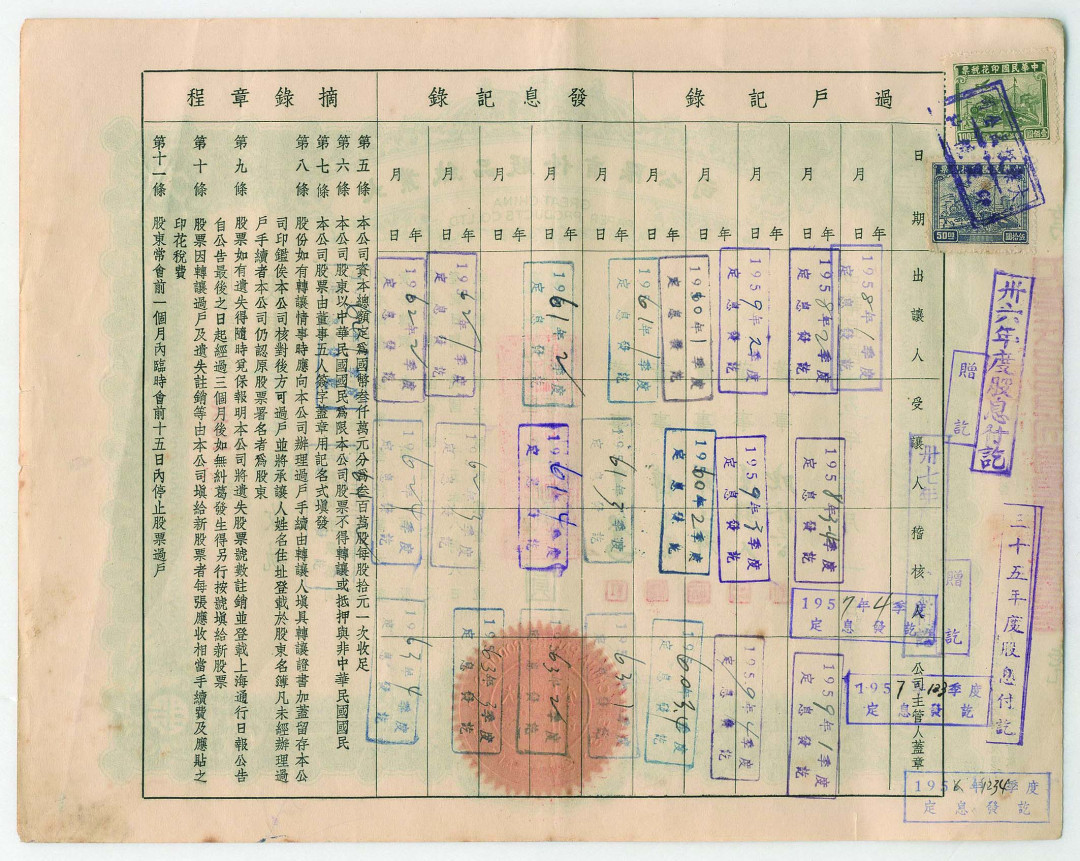 過戶記錄
發息記錄
摘錄章程
日期
出讓人
受讓人
稽核
公司主管人蓋章
年
月
日
第五條 本公司資本總額定為國幣叁仟萬元分為叁百萬股每股拾元一次收足
第六條 本公司股東以中華民國國民為限本公司股票不得轉讓或抵押與非中華民國國民
第七條 本公司股票由董事五人簽字蓋章用記名式填發
第八條 股份如有轉讓情事時應向本公司辦理過戶手續由轉讓人填具轉讓證書加蓋留存本公
司印鑑俟本公司核對後方可過戶並將承讓人姓名住址登載於股東名簿凡未經辦理過
戶手續者本公司仍認原股票署名者為股東
第九條 股票如有遺失得隨時覓保報明本公司將遺失股票號數註銷並登載上海通行日報公告
自公告最後之日起經過三個月後如無糾葛發生得另行按號填給新股票
第十條 股票因轉讓過戶及遺失註銷等由本公司填給新股票者每張應收相當手續費及應貼之
印花稅費
第十一條 股東常會前一個月內臨時會前十五日內停止股票過戶
中華民國印花稅票
50圓
卅六年度股息付訖
贈訖
卅七年
贈訖
三十五年度股息付訖
1956年1234季度
定息發訖
1957年123季度
定息發訖
1957年4季度
定息發訖
1958年1季度
定息發訖
1958年2季度
定息發訖
1958年3-4季度
定息發訖
1959年1季度
定息發訖
1959年2季度
定息發訖
1959年3季度
定息發訖
1959年4季度
定息發訖
1960年1季度
定息發訖
1960年2季度
定息發訖
1960年3,4季度
定息發訖
1961年1季度
定息發訖
1961年2季度
定息發訖
1961年3季度
定息發訖
1961年4季度
定息發訖
1962年1季度
定息發訖
1962年2季度
定息發訖
1962年3季度
定息發訖
1962年4季度
定息發訖
1963年1季度
定息發訖
1963年2季度
定息發訖
1963年3季度
定息發訖
1963年4季度
定息發訖